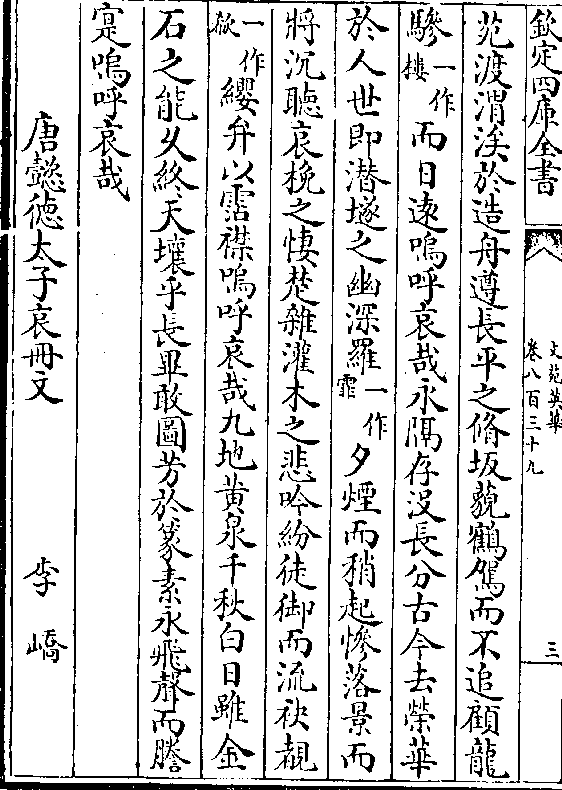 欽定四庫全書
文苑英華
卷八百三十九
三
苑渡渭涘於造舟遵長平之脩坂藐鶴駕而不追顧龍
驂一作樓而日逺嗚呼哀哉永隔存没長分古今去榮華
於人世即潜隧之幽深羅一作霏夕煙而稍起慘落景而
將沉聽哀挽之悽楚雜灌木之悲吟紛徒御而流袂覩
一作纓弁以霑襟嗚呼哀哉九地黄泉千秋白日雖金
石之能久終天壤乎長畢敢圖芳於篆素永飛聲而騰
寔嗚呼哀哉
唐懿徳太子哀冊文 李嶠